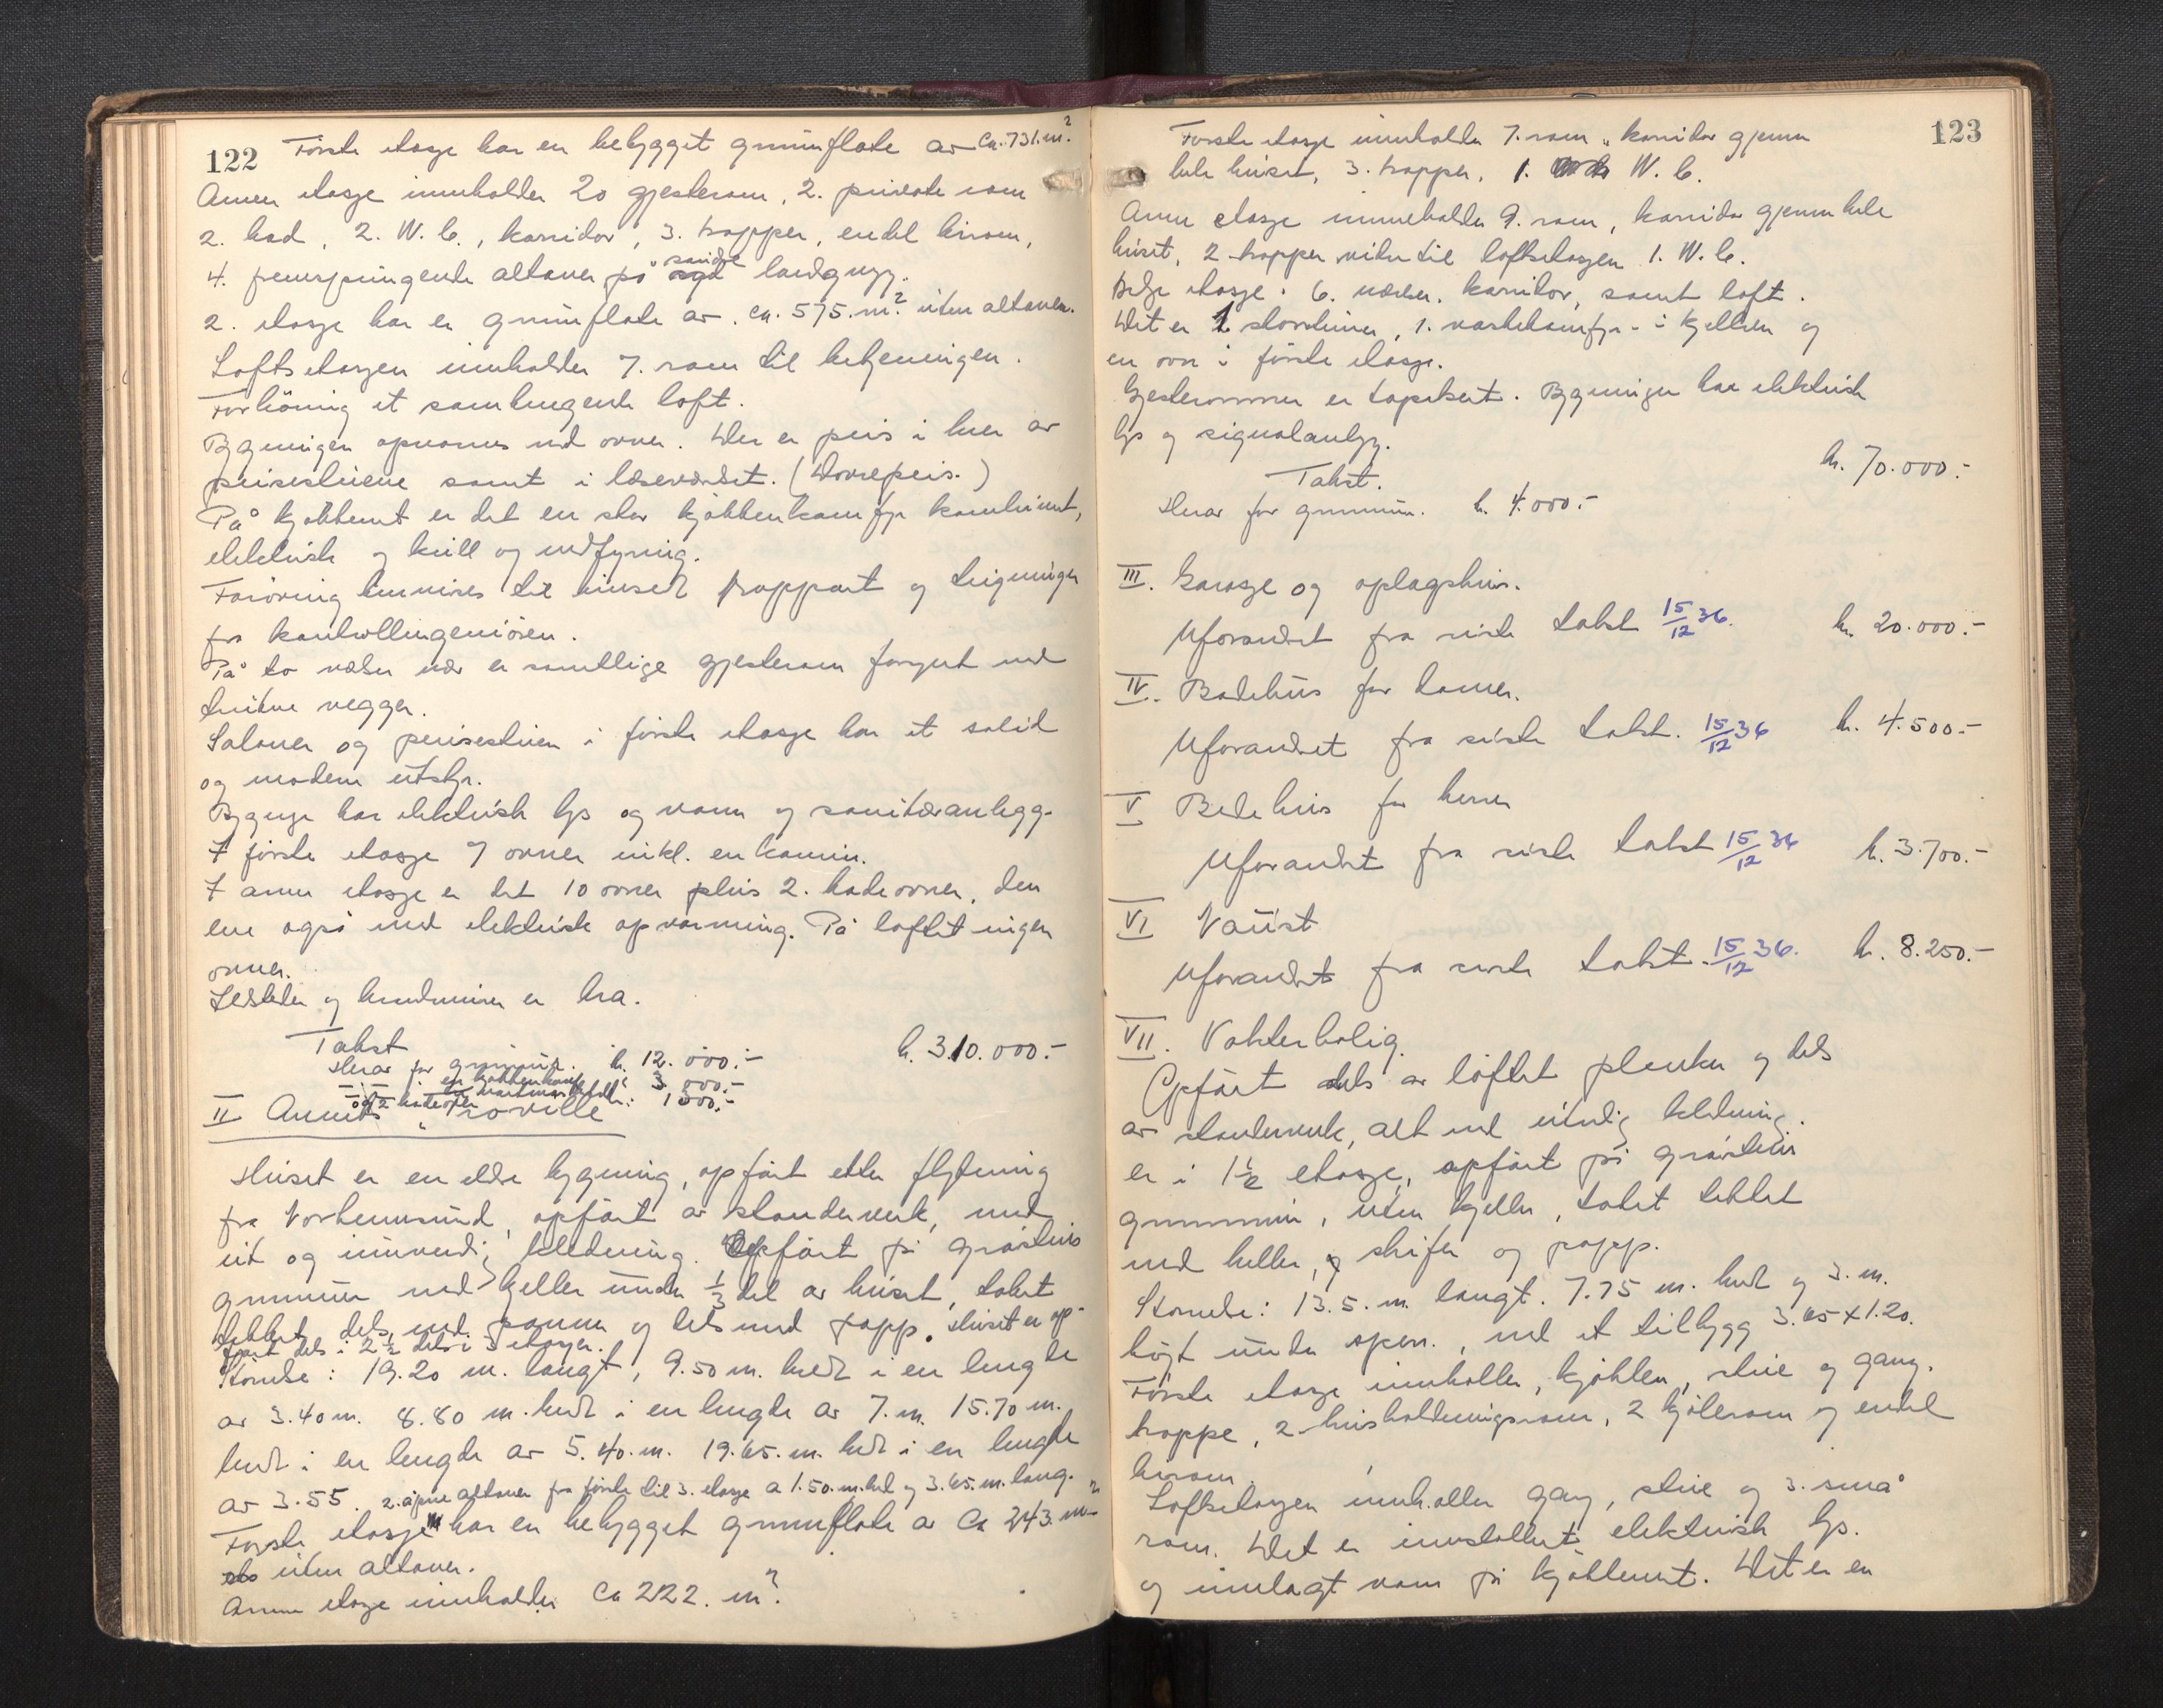 122
Første etasje har en bebygget grunnflate av ca. 731. m²
Annen etasje inneholder 20 gjesterom, 2. private rom
2. bad, 2. W. C., korridor, 3. trapper, endel birom,
4. fremspringende altaner på søndre landgvegg.
2. etasje har en grunnflate av ca. 575. m² uten altaner.
Loftsetasjen inneholder 7. rom til betjeningen.
Forhöning et sammenhengende loft.
Bygningen opvarmes med ovner. Der er peis i hver av
peisestuene samt i leseværelset. (Dovrepeis.)
På kjøkkenet er det en stor kjøkkenkomfyr kombinert,
elektrisk og kull og vedfyring.
Forøvrig henvises til huset rapport og tegninger
fra kontrollingeniören.
På to nær er samtlige gjesterom forsynt med
vegger.
Saloner og peisestuen i første etasje har et solid
og moderne utstyr.
Bygnge har elektrisk lys og vann og sanitæranlegg.
I første etasje 7 ovner inkl. en kamin.
I annen etasje er det 10 ovner pluss 2. badeovner, den
ene også med elektrisk opvarming. På loftet ingen
ovner.
Ildsteder og brandmurer er bra.
Takst kr. 310.000.-
Herav for grunnmur. kr. 12.000.-
—"— en kjøkkenkomf. 3.000.-
og 2 badeovner 1500.-
II Annex "Troville"
Huset er en eldre bygning, opført etter flytning
fra Norheimsund, opført av stenderverk, med
ut og innvendig kledning. Opført på gråsteins
grunnmur med kjeller under 1/3 del av huset, taket
tekket dels med panner og dels med papp. Huset er op-
ført dels i 2½ dels i 3 etasjer.
Størrelse: 19.20 m. langt, 9.50 m. bredt i en lengde
av 3.40 m. 8.80 m. bredt i en lengde av 7. m. 15.70 m.
bredt i en lengde av 5.40. m. 19.65. m. bredt i en lengde
av 3.55. 2. åpne altaner fra første til 3. etasje a 1.50. m. bred og 3.65. m. lang.
Første etasje har en bebygget grunnflate av ca 243. m²
uten altaner.
Annen etasje inneholder ca 222. m²
123
Første etasje inneholder 7. rom, korridor gjennem
hele huset, 3. trapper, 1. W. C.
Annen etasje inneholder 9. rom, korridor gjennem hele
huset, 2 trapper videre til loftsetasjen 1. W. C.
etasje: 6. værelser. korridor, samt loft.
Det er 1 , 1. vaskekomfyr - i kjelleren og
en ovn i første etasje.
Gjesterommene er tapetsert. Bygningen har elektrisk
lys og signalanlegg.
Takst. kr. 70.000.-
Herav for grunnmur. kr. 4.000.-
III. Garasje og oplagshus.
Uforandret fra siste takst 15/12 36. kr. 20.000.-
IV. Badehus for damer.
Uforandret fra siste takst. 15/12 36 kr. 4.500.-
V Badehus for herrer
Uforandret fra siste takst 15/12 36 kr. 3.700.-
VI Naust
Uforandret fra siste takst. 15/12 36. kr. 8.250.-
VII. Vokterbolig.
Opført dels av løftet plenker og dels
av stenderverk, alt med utvendig kledning.
er i 1½ etasje, opført på gråsteins
grunnmur, uten kjeller, taket tekket
med heller, skifer og papp.
Størrelse: 13.5. m. langt. 7.75 m. bredt og 3. m.
høyt under open., med et tilbygg 3.65 x 1.20.
Første etasje inneholder, kjøkken, stue og gang.
trappe, 2 husholdningsrom, 2 kjølerom og endel
birom.
Loftsetasjen inneholder gang, stue og 3. små
rom. Det er innstallert elektrisk lys.
og innlagt vann på kjøkkenet. Det er en